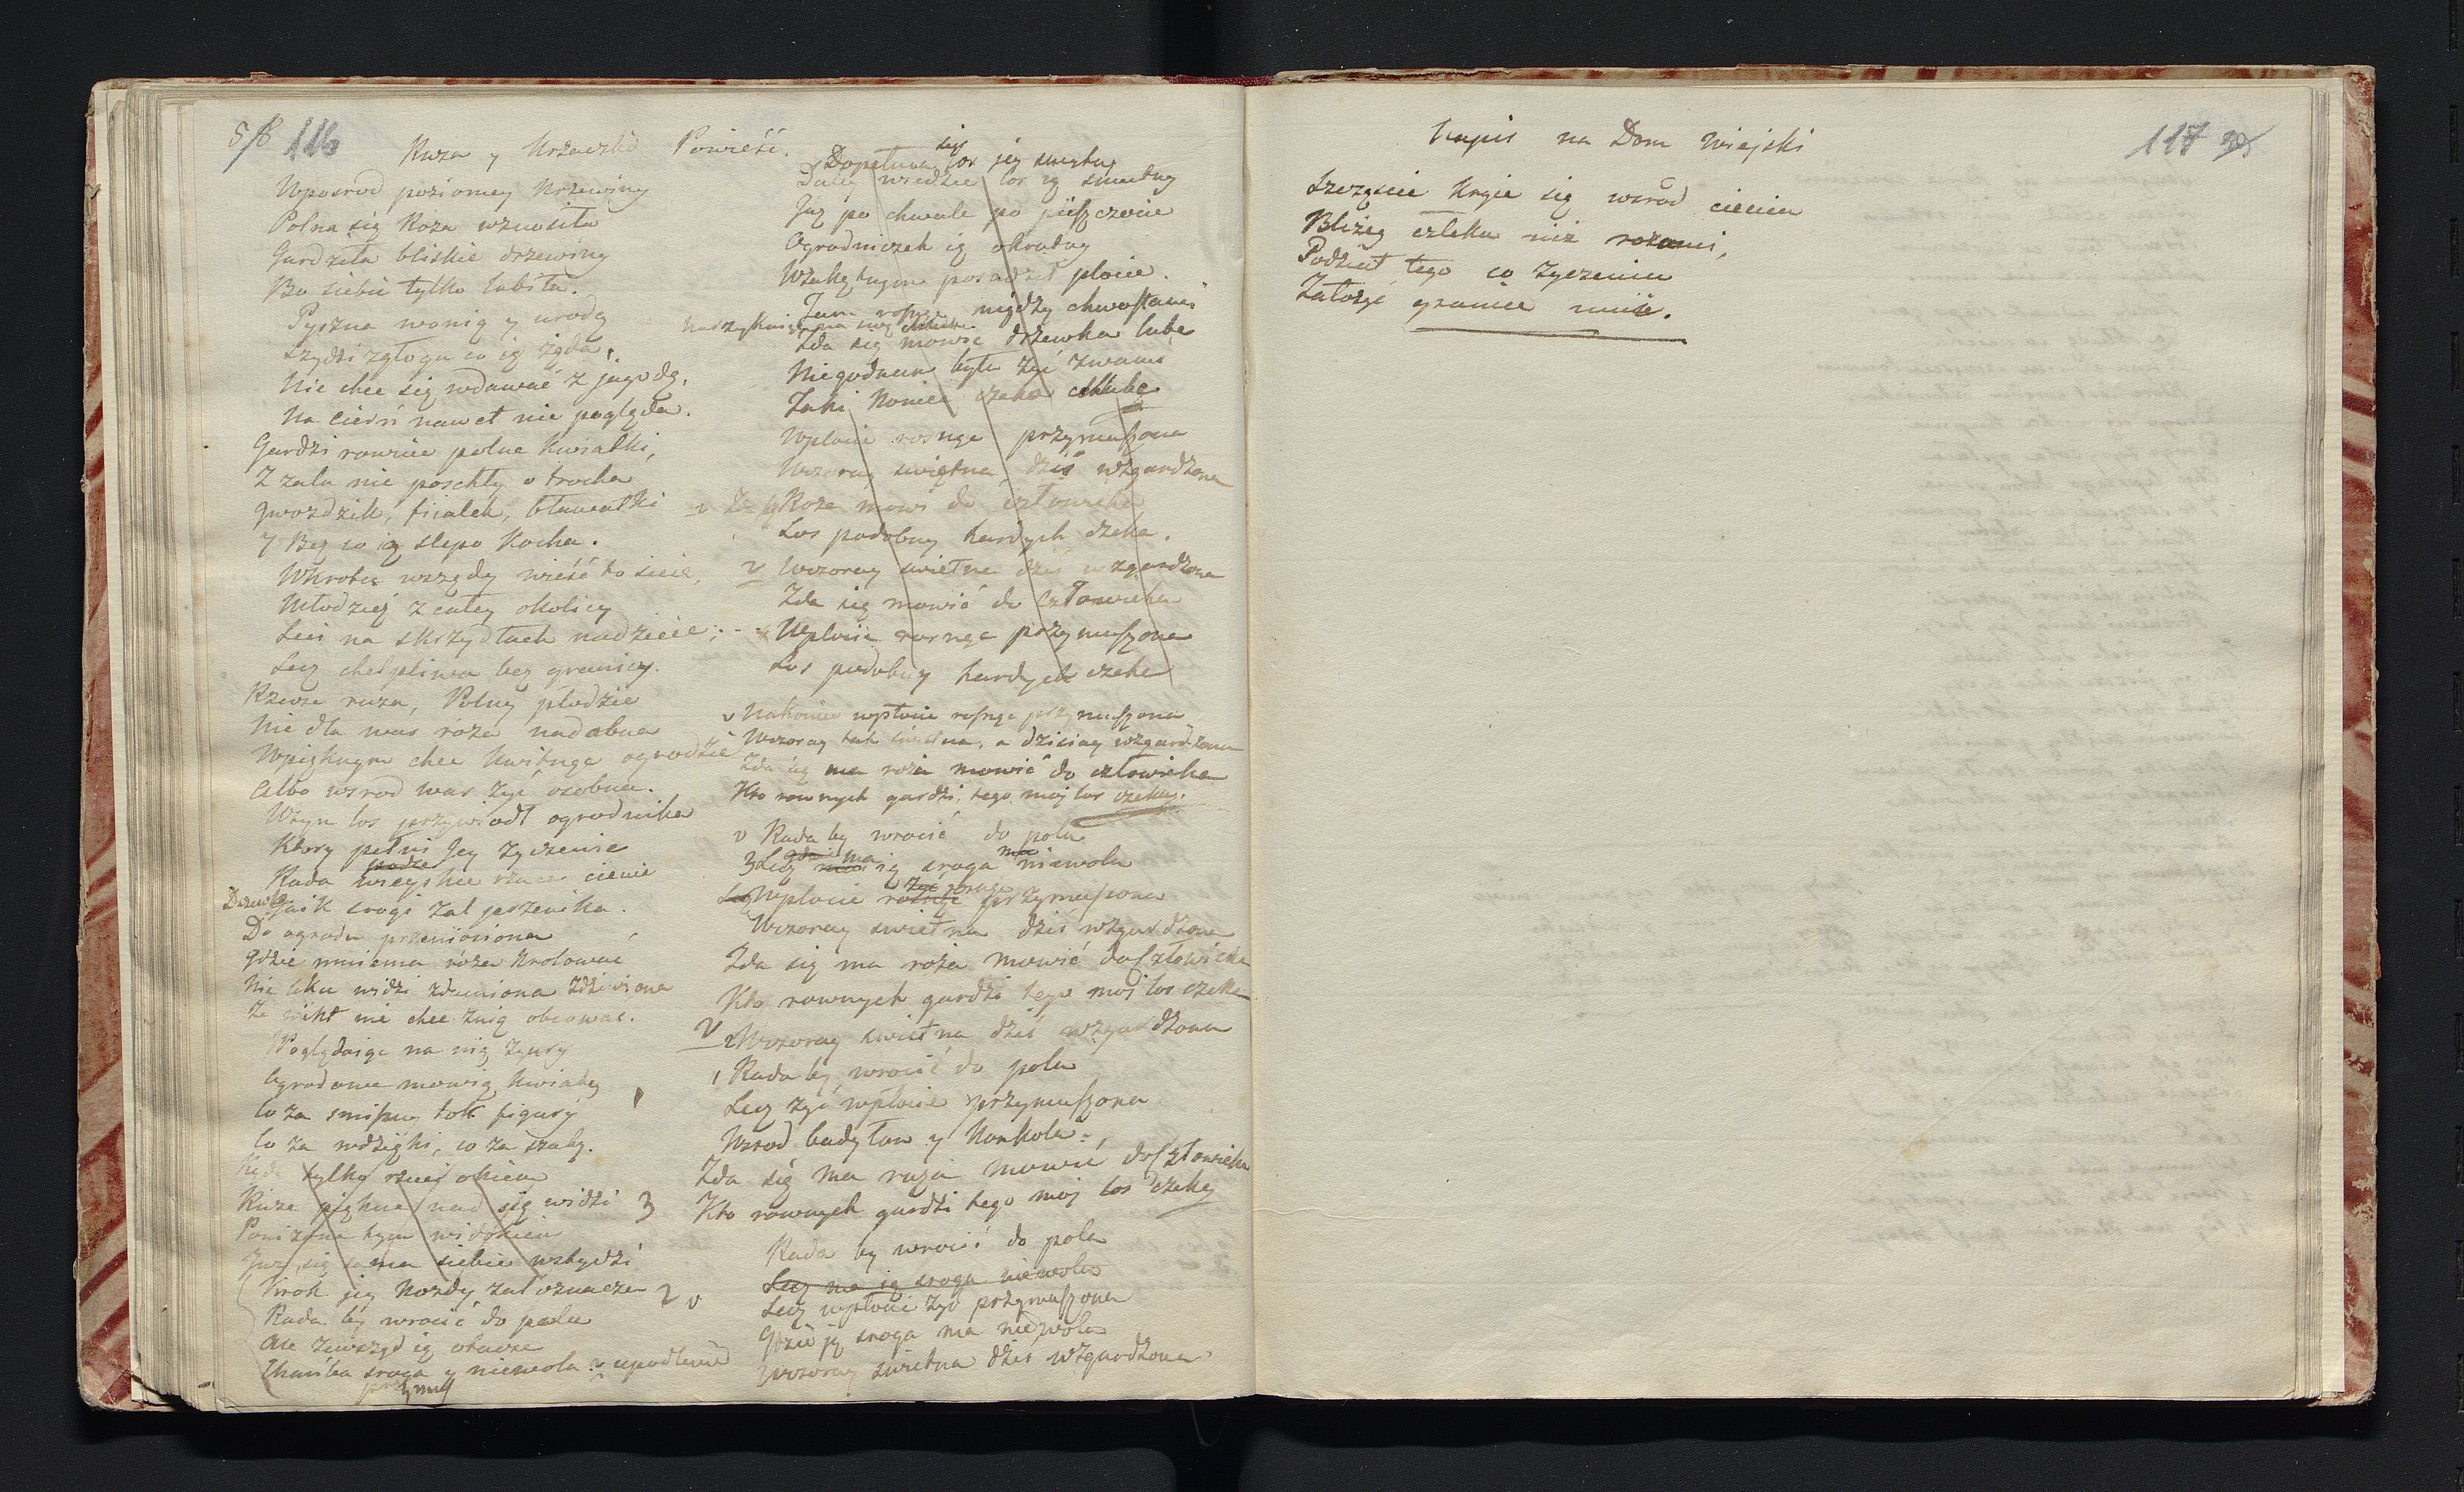 58 116
Ruza y Krzaczki Powieść.
Wposrod poziomey Krzewiny
Polna się Roza wznosiła
Gardziła bliskie drzewiny
Bo siebie tylko lubiła.
Pyszna wonią y urodą
Szydzi zgłogu co ią żąda,
Nie chce się wdawać z jagodą,
Na cierń nawet nie pogląda.
Gardzi rownie polne kwiatki,
Z zalu nie poschły o trocha
Gwozdzik, fiialek, bławatki
Y Bez co ią slepo Kocha.
Wkrotce wszędy wieść to sieie,
Młodzież z całey okolicy
Leci na skrzydłach nadzieie;
Lecz chełpliwa bez granicy.
Rzecze ruza, Polny płodzie
Nie dla was róża nadobna
Wpięknym chce kwitnąc ogrodzie
Albo wsrod was żyć osobna.
Wtym los przywiodł ogrodnika
Ktory pełni Jey życzenie
Rada wieyskie rzuca cienie
Drzewka srogi żal przenika.
Do ogrodu przeniesiona
Gdzie mniema róża Krolować
Nie lku widzi zdumiona zdziwiona
Ze nikt nie chce znią obcować.
Poglądaiąc na nią zgury
Ogrodowe mowią kwiaty
Co za smiszny tok figury
Co za wdzięki, co za szaty.
Kędy tylko rzuci okiem
Ruże piękne nad się widzi 3
Poniżona tym widokiem
Juz się sama siebie wstydzi
Krok jey kozdy żal oznacza 2
Rada by wrocić do pola
Ale zewsząd ią otacza
Hańba sroga y niewola upodlenie
Dopełnia się los jey smutny
Daley wiedzie los ią smutny
Już po chwale po pieszczocie
Ogrodniczek ią okrutny
Wzakątnym posadził płocie.
Tam rosnąc między chwastami
Zda się mowić drzewka lube
Niegodnam była żyć zwami
Taki koniec czeka chlubę
Wplocie rosnąc przymuszona
Wczoray swietna dziś wzgardzona
Roza mowi do człowieka
Los podobny hardych czeka.
v Wczoray swietna dziś wzgardzona
Zda się mowić do człowieka
Wplocie rosnąc przymuszona
Los podobny hardych czeka
v Nakoniec wpłocie rosnąc przymuszona
Wczoray tak świetna, a dzisiay wzgardzona
Zda się ma roża mowić do człowieka
Kto rownych gardzi, tego moj los czeka.
v Rada by wrocić do pola
3 Lecz ma ią sroga niewola
Wplocie rosnąc przymuszona
Wczoray swietna dziś wzgardzona
Zda się ma roża mowić do człowieka
Kto rownych gardzi tego moj los czeka
v 2 Wczoray swietna dziś wzgardzona
1 Rada by wrocić do pola
Lecz żyć wplocie przymuszona
Wsrod badylow y Konkola,
Zda się ma ruża mowić do człowieka
Kto rownych gardzi tego moj los czeka
Rada by wrocić do pola
Lecz ma ią sroga niewola
v Lecz wpłocie żyć przymuszona
Gdzie ją sroga ma niewola
Wczoray swietna dziś wzgardzona
117
Napis na Dom wieyski
Szczęscie kryie się wsrod cienia
Bliżey człeka niż rozumi,
Podział tego co życzenia
Założyć granice umie.